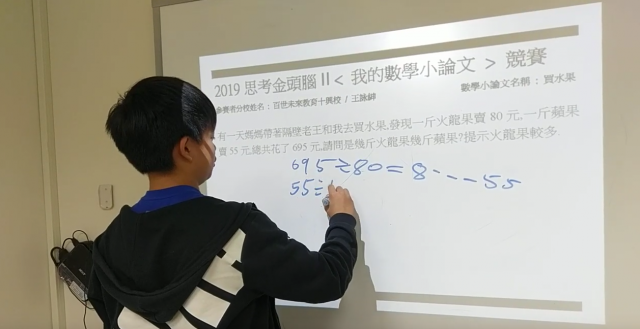 2019 思考金頭腦 II < 我的數學小論文 > 競賽
參賽者分校姓名：百世未來教育十興校 / 王詠紳
數學小論文名稱：買水果
有一天媽媽帶著隔壁老王和我去買水果,發現一斤火龍果賣 80 元,一斤蘋果
賣 55 元,總共花了 695 元,請問是幾斤火龍果幾斤蘋果?提示火龍果較多
695÷80=8····55
55÷